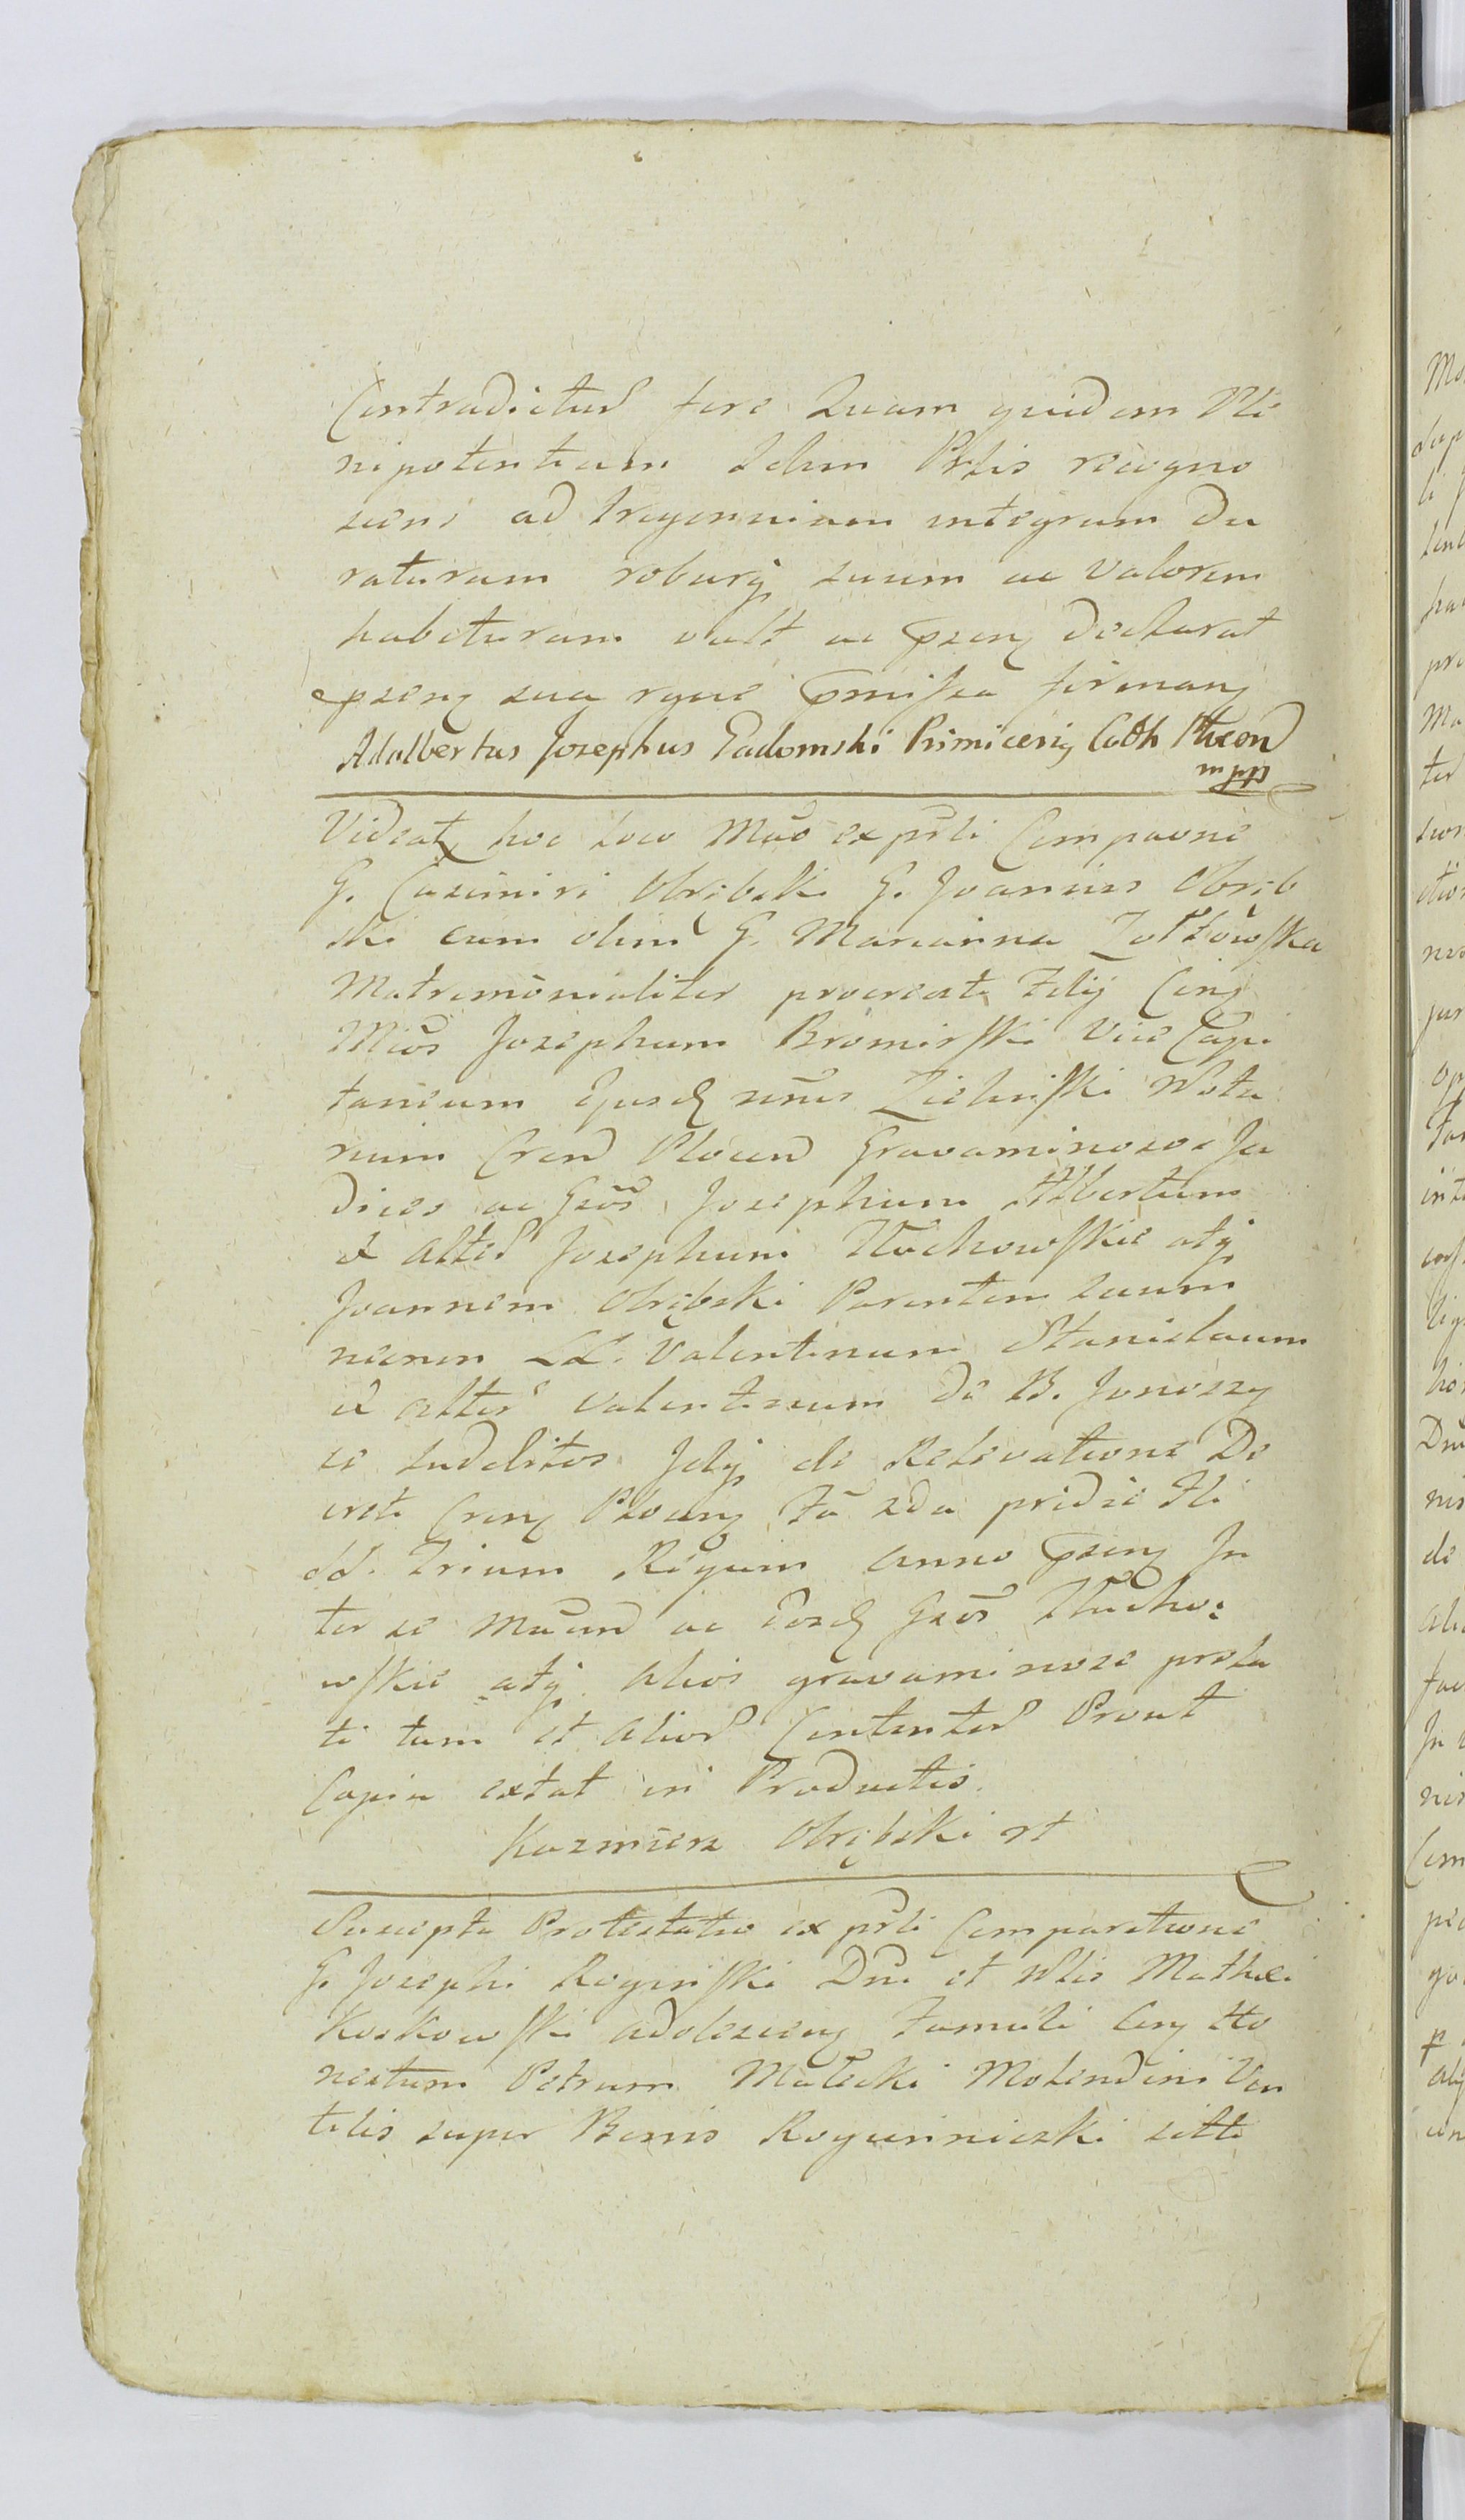 Contradictur fore Quam quidem Ple
nipotentiam Idem Prlis recogno
scens ad tregennium integrum du
raturam roburq suum ac valorem
habituram vult ac pzenq declarat
pzenq sua rque pmissa firmanq
Adalbertus Josephus Gadomski Primiceriq Cath Plocen
mpp
Videatq hoc loco Mao ex prli Comparne
G. Casimiri Obrębski G. Joannis Obręb
ski cum olim G. Marianna Zołtowska
Matrimonialiter procreati Filij Cinq
Micos Josephum Bromirski Vice Capi
taneum Ejusq nris Zielinski Nota
rium Cren Plocen Gravaminosos Ju
dices ac Gsos Josephum Albertum
et alter Josephum Tłuchowskie atq
Joannem Obrębski Parentem suum
necnon LL. Valentinum Stanislaum
et alter Valentinum de B. Jonoszy
se subditos Idq de Relevatione De
creti Crenq Plocenq Fa 2da pridie Fti
SS. Trium Regum anno pzenq In
ter se Maun ac eosq Gsos Tłucho:
wskie atq alios gravaminose prola
ti tum et alior Contentor Prout
Copia extat in Productis.
Kazmierz Obrębski rt
Suscepta Protestatio ex prli Comparitione
G. Josephi Roginski Dni et Nlis Mathei
Koskowski adolescenq Famuli Cinq Ho
nestum Petrum Małecki Molendini Ven
tilis super Bonis Roguiniezki sitti